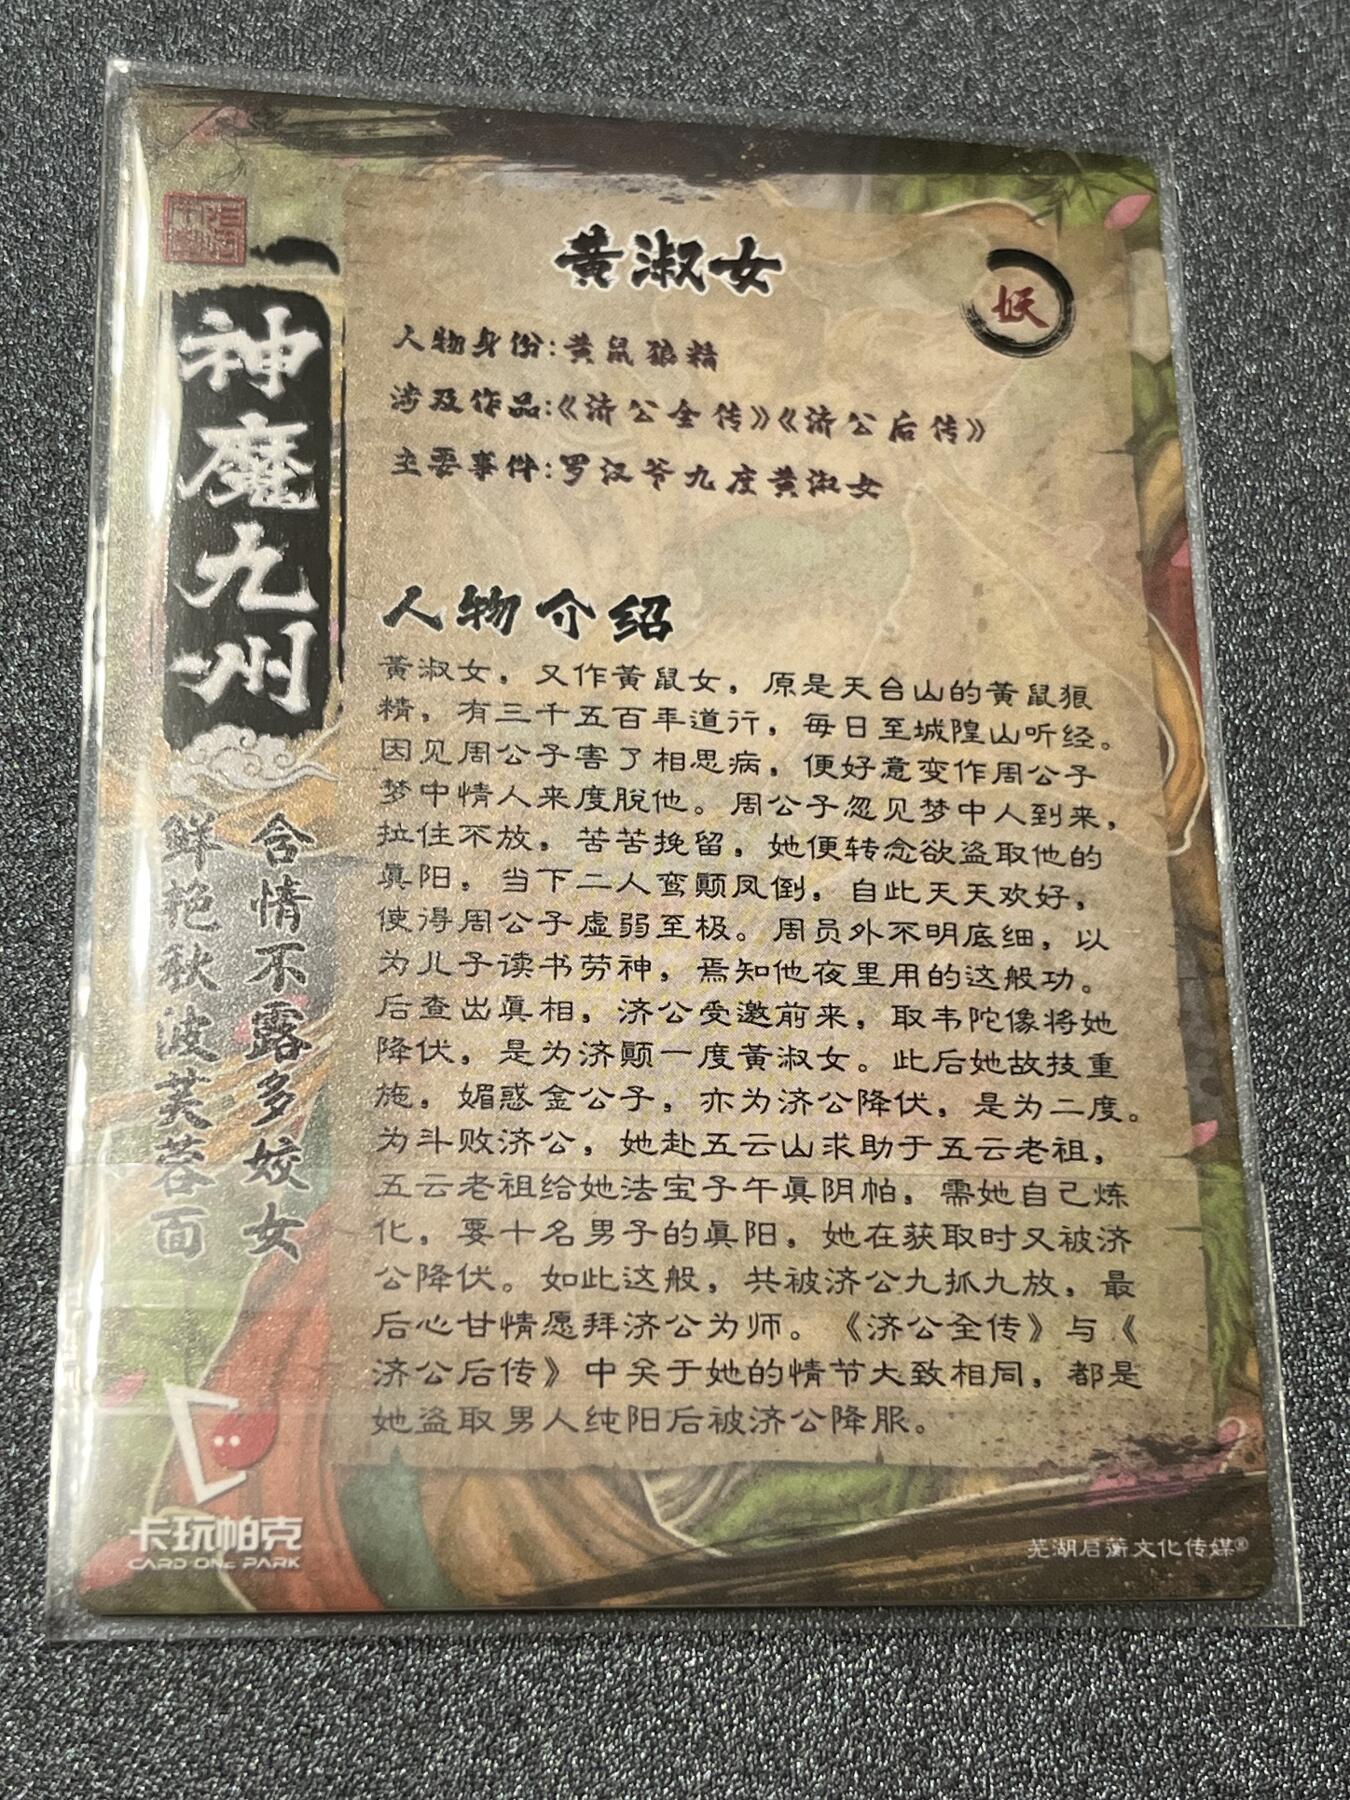 黄淑女
妖
人物身份:黄鼠狼精
涉及作品:《济公全传》《济公后传》
主要事件:罗汉爷九度黄淑女
人物介绍
黄淑女，又作黄鼠女，原是天台山的黄鼠狼
精，有三千五百年道行，每日至城隍山听经。
因见周公子害了相思病，便好意变作周公子
梦中情人来度脱他。周公子忽见梦中人到来，
拉住不放，苦苦挽留，她便转念欲盗取他的
真阳，当下二人鸾颠凤倒，自此天天欢好，
使得周公子虚弱至极。周员外不明底细，以
为儿子读书劳神，焉知他夜里用的这般功。
后查出真相，济公受邀前来，取韦陀像将她
降伏，是为济颠一度黄淑女。此后她故技重
施，媚惑金公子，亦为济公降伏，是为二度。
为斗败济公，她赴五云山求助于五云老祖，
五云老祖给她法宝子午真阴帕，需她自己炼
化，要十名男子的真阳，她在获取时又被济
公降伏。如此这般，共被济公九抓九放，最
后心甘情愿拜济公为师。《济公全传》与《
济公后传》中关于她的情节大致相同，都是
她盗取男人纯阳后被济公降服。
神魔九州
含情不露多姣女
鲜艳秋波芙蓉面
卡玩帕克
CARD ONE PARK
芜湖启蒙文化传媒®